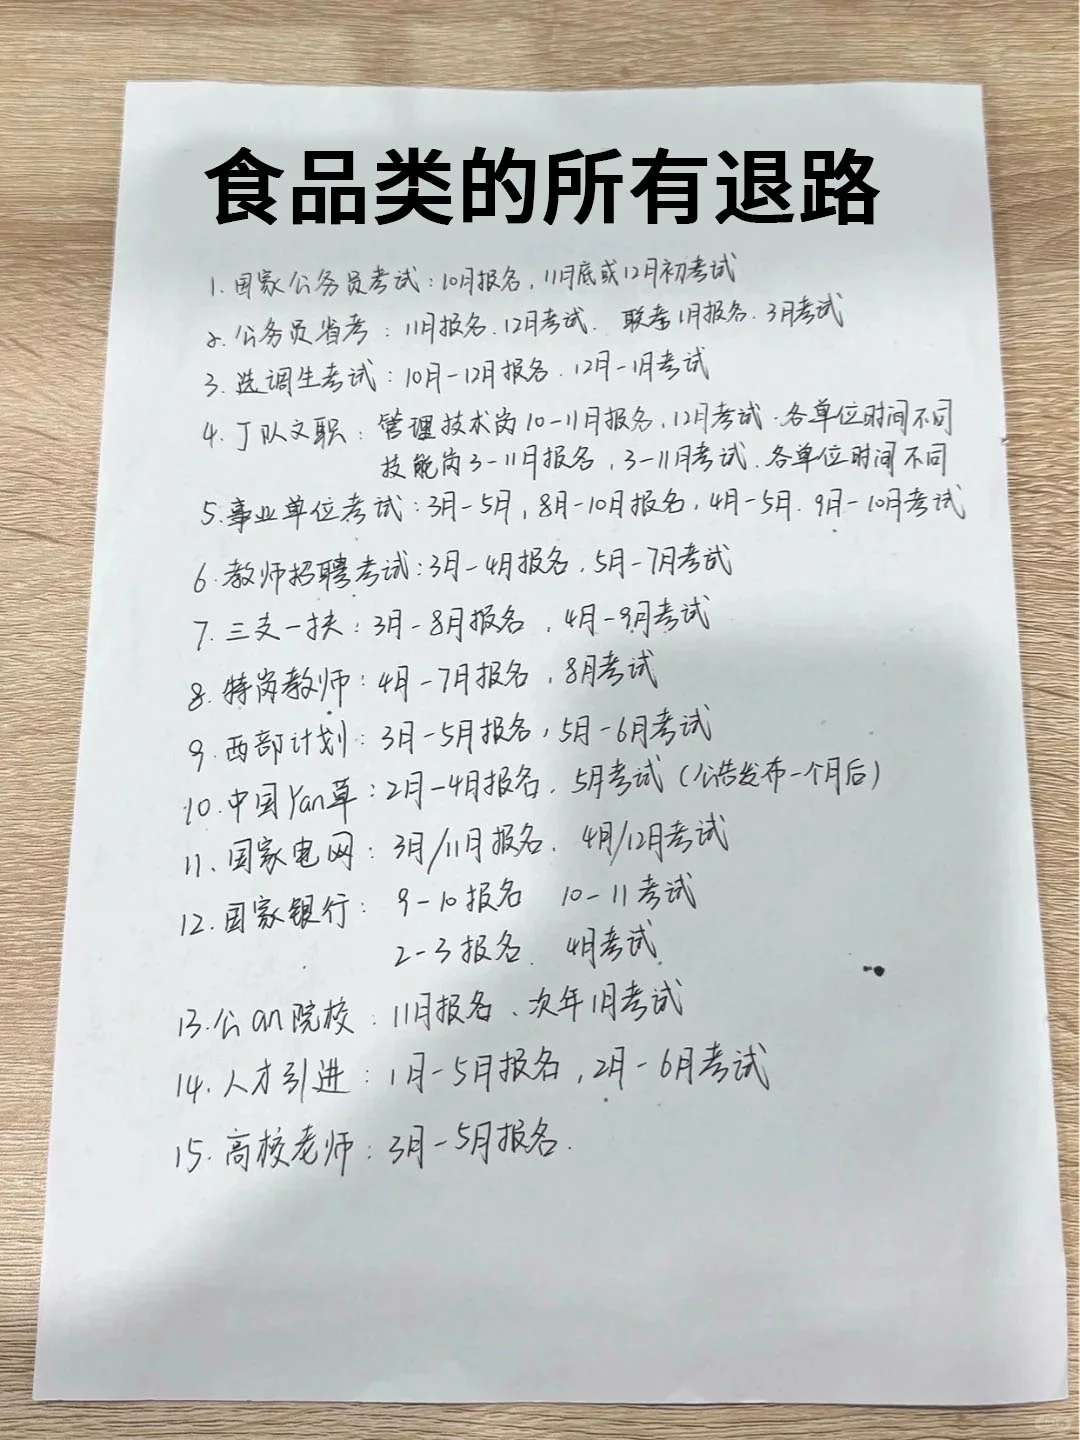 食品类的所有退路
1.国家公务员考试:10月报名,11月底或12月初考试
2.公务员省考:11月报名.12月考试. 联考1月报名.3月考试
3.选调生考试:10月-12月报名.12月-1月考试
4.J队文职:管理技术岗10-11月报名,12月考试.各单位时间不同
技能岗3-11月报名,3-11月考试.各单位时间不同
5.事业单位考试:3月-5月,8月-10月报名,4月-5月.9月-10月考试
6.教师招聘考试:3月-4月报名.5月-7月考试
7.三支一扶:3月-8月报名,4月-9月考试
8.特岗教师:4月-7月报名,8月考试
9.西部计划:3月-5月报名,5月-6月考试
10.中国Yan草:2月-4月报名.5月考试(公告发布一个月后)
11.国家电网:3月/11月报名. 4月/12月考试
12.国家银行: 9-10报名 10-11考试
2-3报名. 4月考试.
13.公an院校:11月报名、次年1月考试
14.人才引进:1月-5月报名,2月-6月考试
15.高校老师:3月-5月报名.